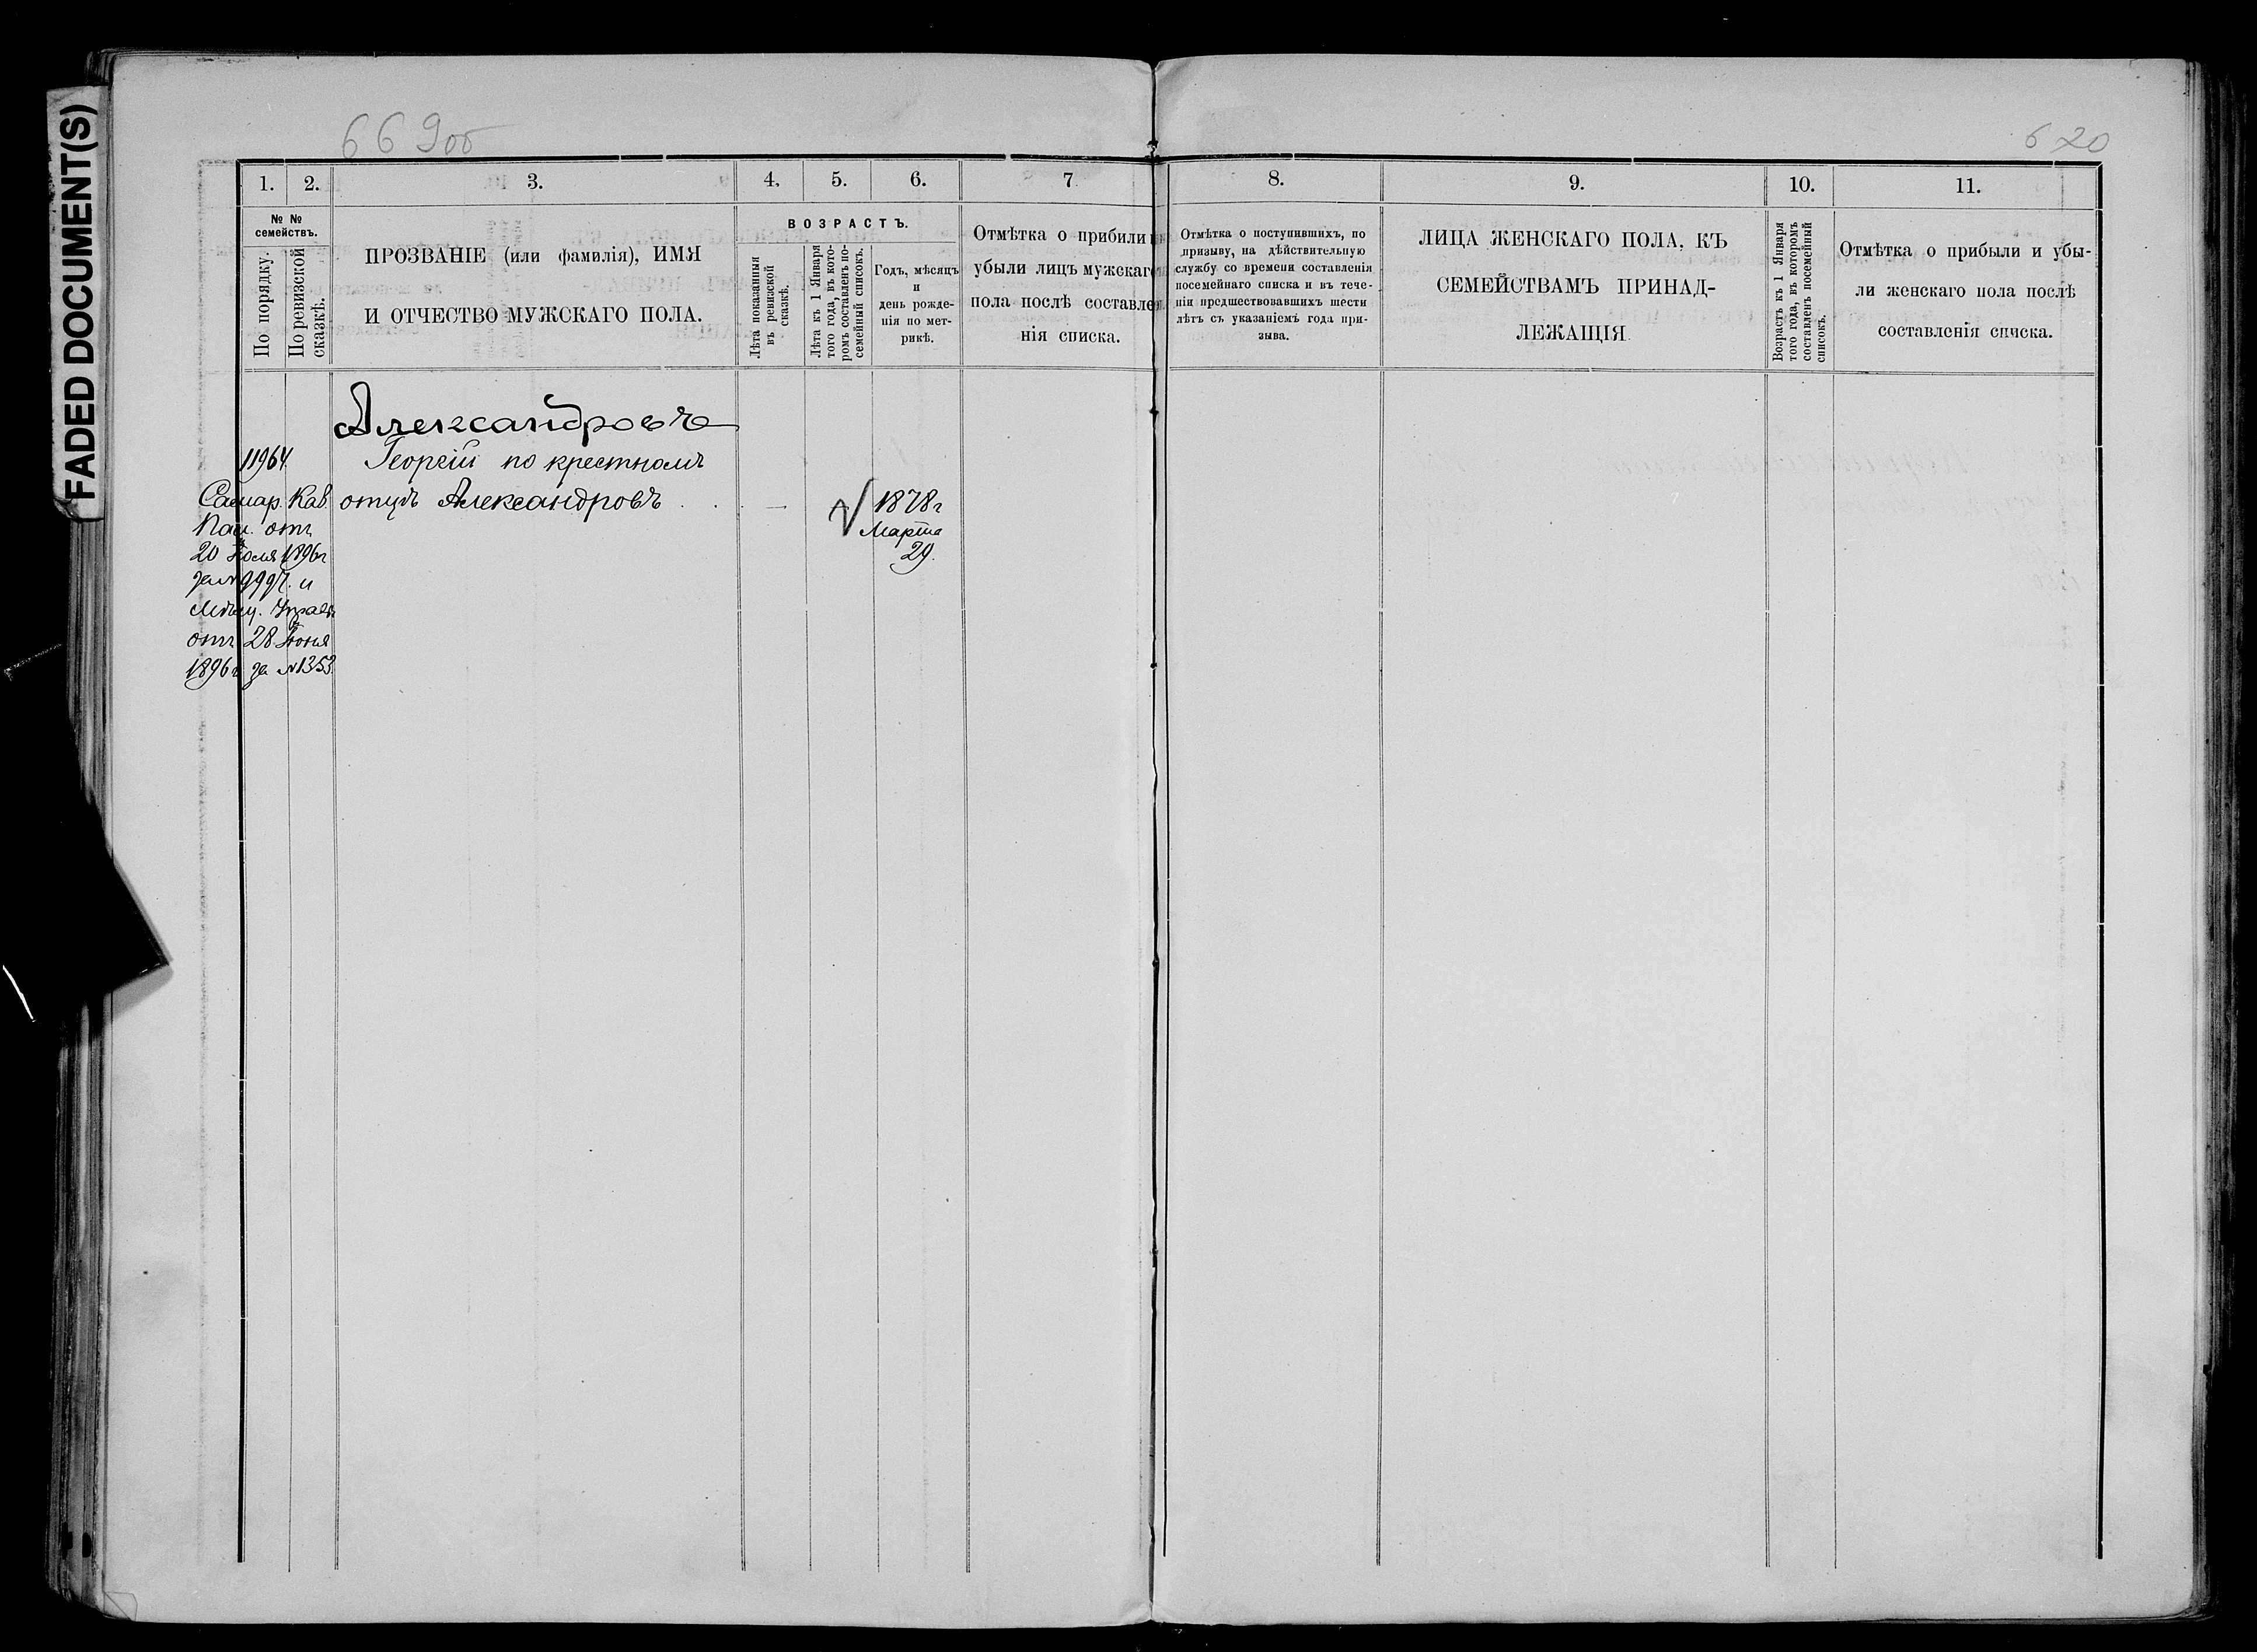 FADED DOCUMENT(S)
669об
620
1. 2. 3. 4. 5. 6. 7 8. 9. 10. 11.
№ №
семействъ.
По порядку.
По ревизской
сказкѣ.
ПРОЗВАНІЕ (или фамилія), ИМЯ
И ОТЧЕСТВО МУЖСКАГО ПОЛА.
ВОЗРАСТЪ.
Лѣта показанныя
въ ревизской
сказкѣ.
Лѣта къ 1 Января
того года, въ кото-
ромъ составленъ по-
семейный списокъ.
Годъ, мѣсяцъ
и
день рожде-
нія по мет-
рикѣ.
Отмѣтка о прибыли и
убыли лицъ мужскаго
пола послѣ составле
нія списка.
Отмѣтка о поступившихъ, по
призыву, на дѣйствительную
службу со времени составленія
посемейнаго списка и въ тече-
ніи предшествовавшихъ шести
лѣтъ съ указаніемъ года при-
зыва.
ЛИЦА ЖЕНСКАГО ПОЛА, КЪ
СЕМЕЙСТВАМЪ ПРИНАД-
ЛЕЖАЩІЯ
Возрастъ къ 1 Января
того года, въ которомъ
составленъ посемейный
списокъ.
Отмѣтка о прибыли и убы-
ли женскаго пола послѣ
составленія списка.
Александровъ
11964 Георгій по крестномъ
отцѣ Александровъ
Самар. Каз.
Пал. отъ
20 Іюля 1896г
за № 9997. и
Мѣщ. Управ
отъ 28 Іюня
1896г за № 1353
1878г
Марта
29.